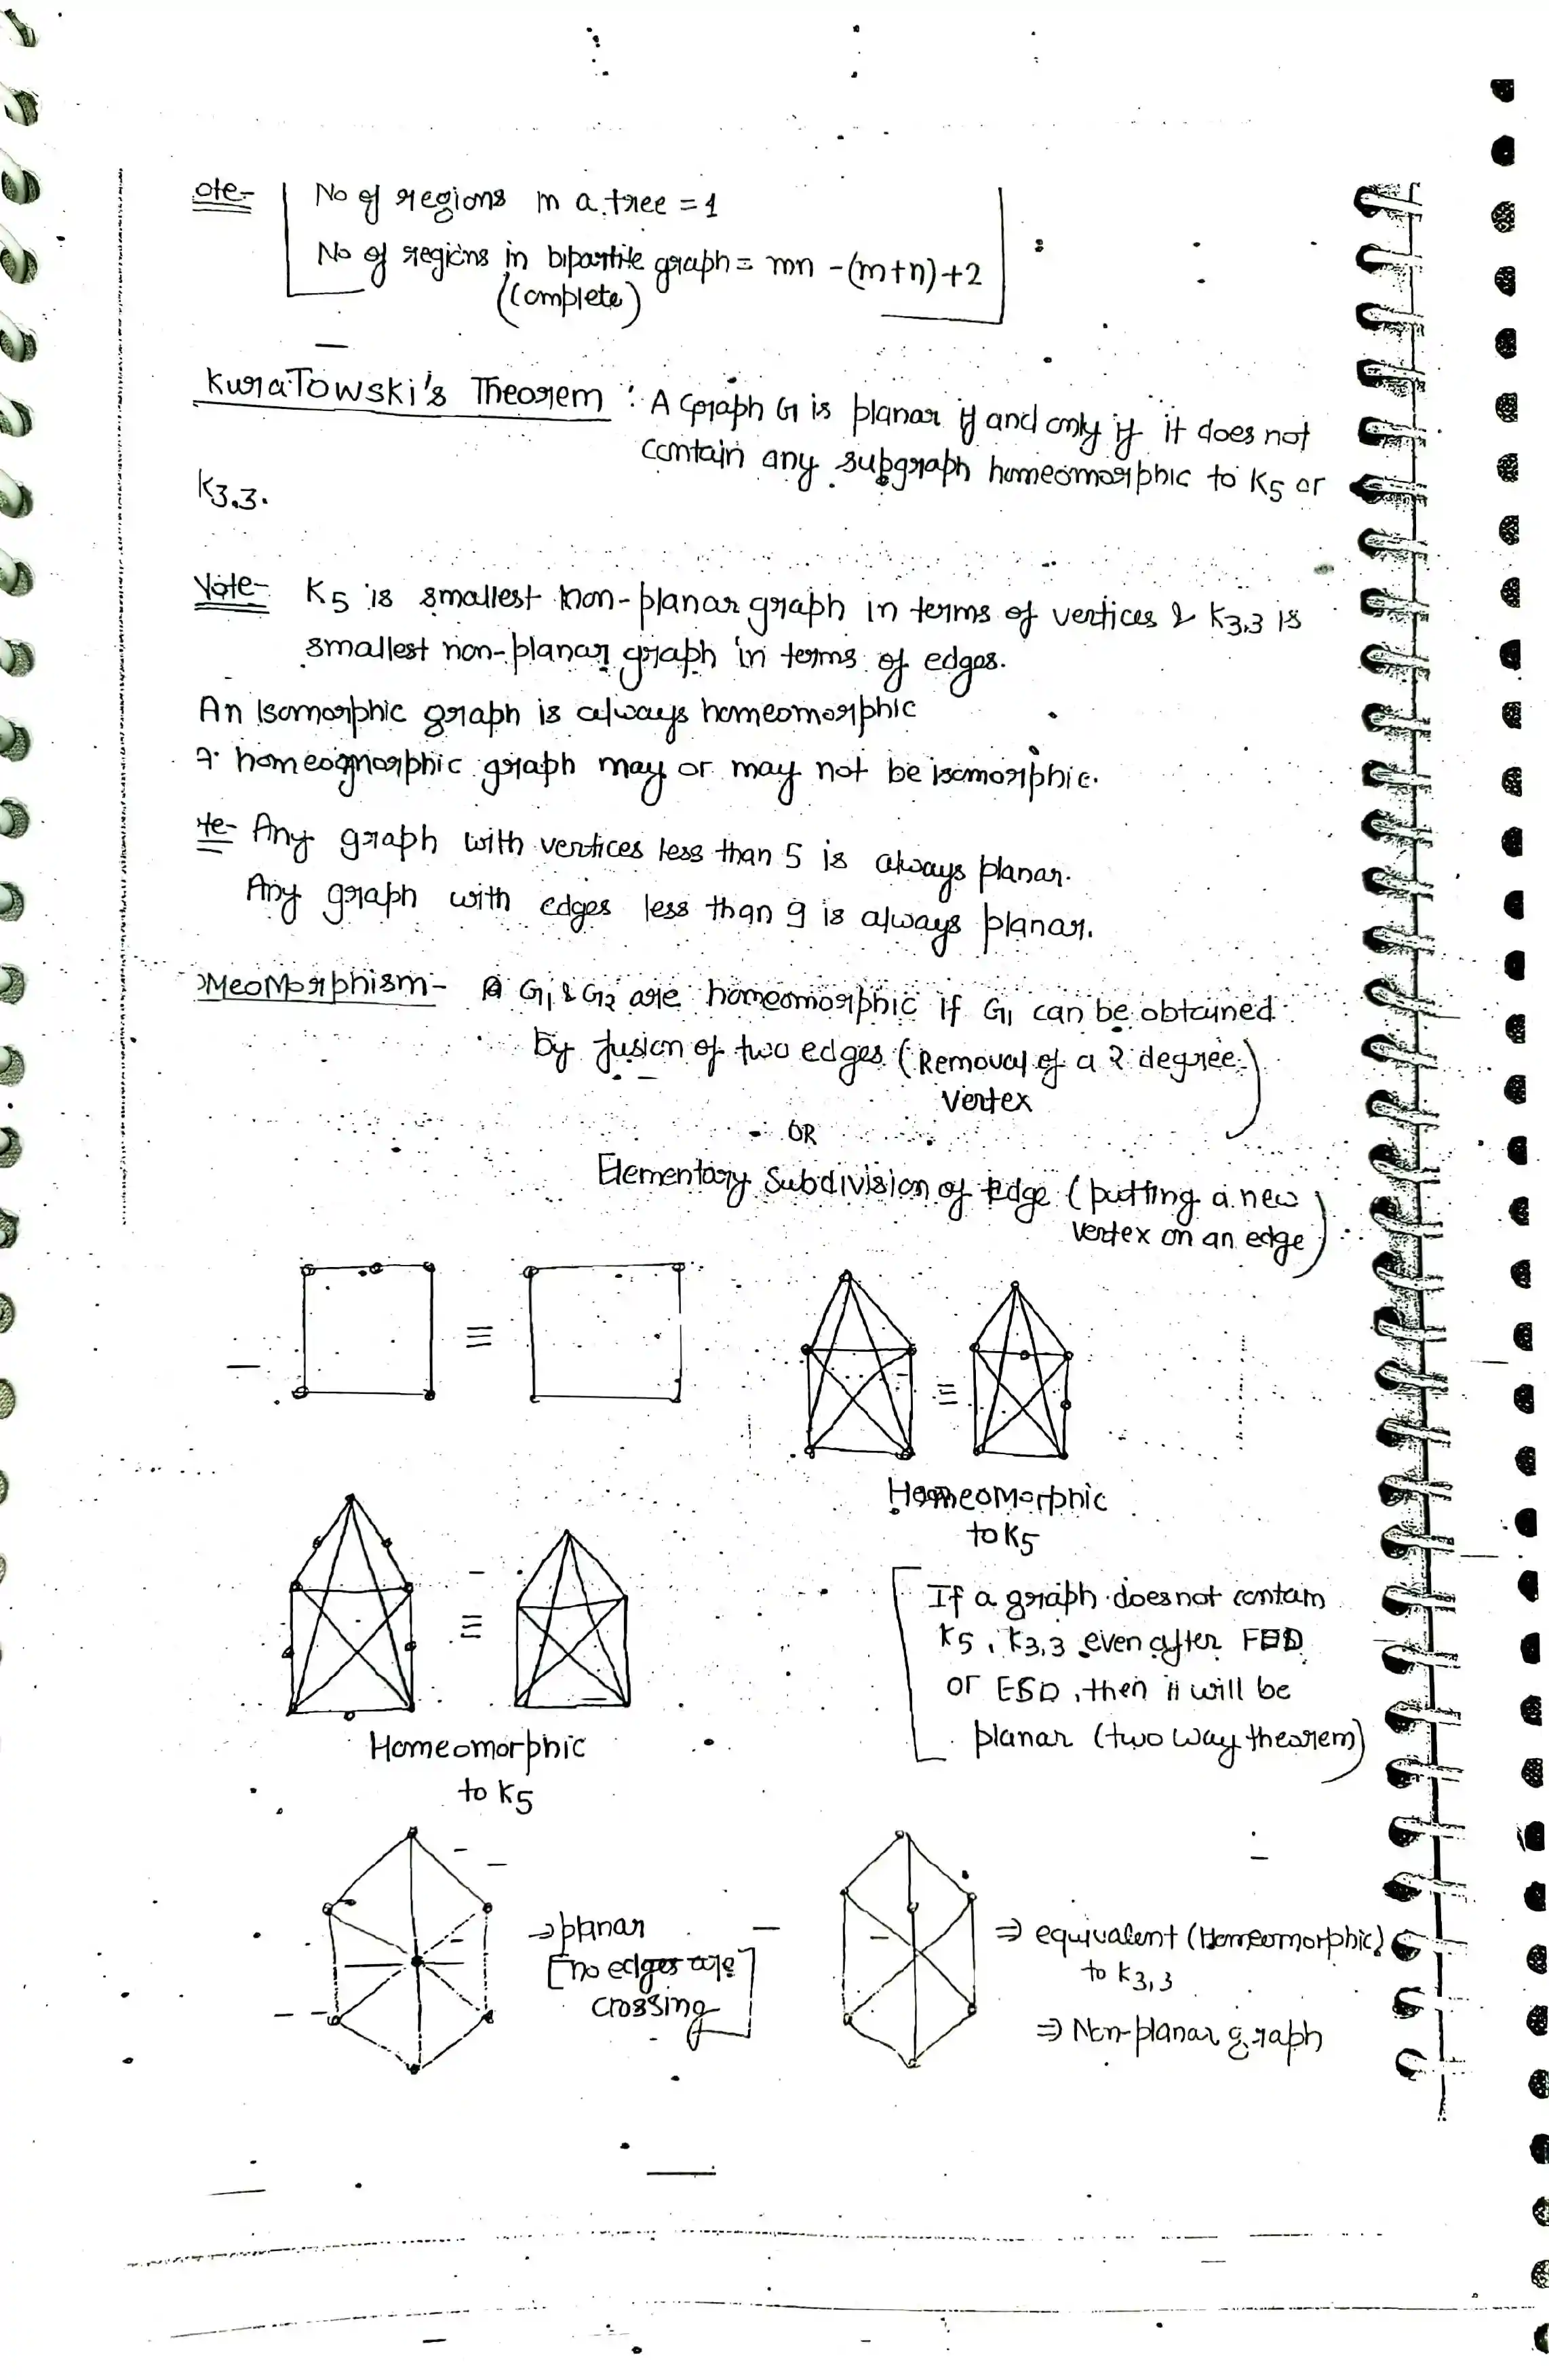 ote-
No of regions in a tree = 1
No of regions in bipartite graph = mn - (m+n)+2
(complete)
KuraTowski's Theorem : A Graph G is planar if and only if it does not
contain any subgraph homeomorphic to K5 or
K3,3.
Note- K5 is smallest non-planar graph in terms of vertices & K3,3 is
smallest non-planar graph in terms of edges.
An Isomorphic graph is always homeomorphic
homeomorphic graph may or may not be isomorphic.
te- Any graph with vertices less than 5 is always planar.
Any graph with edges less than 9 is always planar.
MeoMorphism- G1 & G2 are homeomorphic if G1 can be obtained
by fusion of two edges (Removal of a 2 degree
vertex)
OR
Elementary Subdivision of Edge (putting a new
vertex on an edge)
≡
≡
Homeomorphic
to K5
≡
Homeomorphic
to K5
If a graph does not contain
K5, K3,3 even after
or ESD, then it will be
planar (two way theorem)
→ planar
[no edges are
crossing]
⇒ equivalent (Homeomorphic)
to K3,3
⇒ Non-planar graph